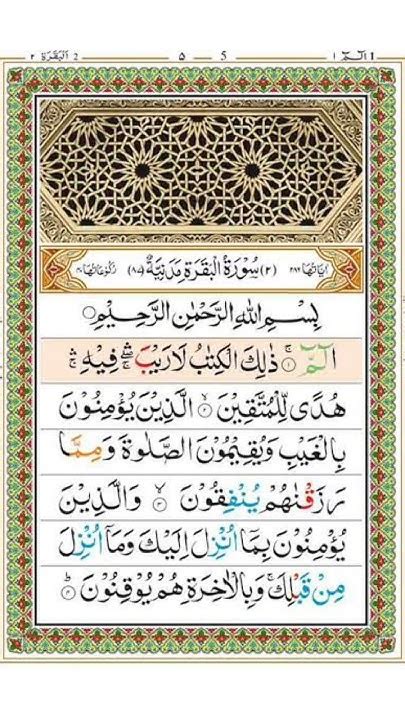 الٓمّٓ ١ ٥ 5 البقرة ٢ 2
اٰیاتها ٢٨٦ (٢) سُوْرَةُ الْبَقَرَةِ مَدَنِيَّةٌ (٨٧) رکوعاتها ٤٠
بِسْمِ اللّٰهِ الرَّحْمٰنِ الرَّحِيْمِ
الٓمّٓ ۚ ١ ذٰلِكَ الْكِتٰبُ لَا رَيْبَ ۛۚ فِيْهِ ۛۚ
هُدًى لِّلْمُتَّقِيْنَ ۙ ٢ الَّذِيْنَ يُؤْمِنُوْنَ
بِالْغَيْبِ وَيُقِيْمُوْنَ الصَّلٰوةَ وَمِمَّا
رَزَقْنٰهُمْ يُنْفِقُوْنَ ۙ ٣ وَالَّذِيْنَ
يُؤْمِنُوْنَ بِمَآ اُنْزِلَ اِلَيْكَ وَمَآ اُنْزِلَ
مِنْ قَبْلِكَ ۚ وَبِالْاٰخِرَةِ هُمْ يُوْقِنُوْنَ ؕ ٤